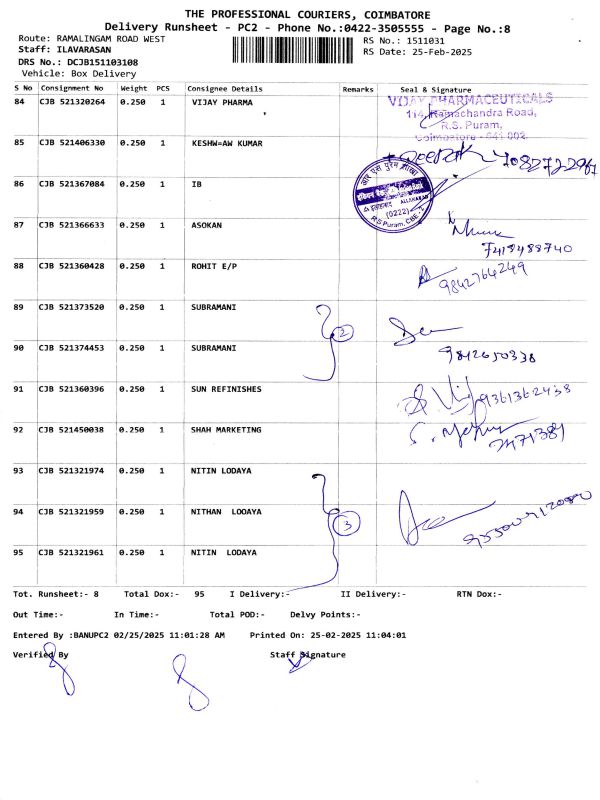 THE PROFESSIONAL COURIERS, COIMBATORE
Delivery Runsheet - PC2 - Phone No.:0422-3505555 - Page No.:8
Route: RAMALINGAM ROAD WEST
RS No.: 1511031
Staff: ILAVARASAN
RS Date: 25-Feb-2025
DRS No.: DCJB151103108
Vehicle: Box Delivery
S No Consignment No Weight PCS Consignee Details Remarks Seal & Signature
84 CJB 521320264 0.250 1 VIJAY PHARMA
VIJAY PHARMACEUTICALS
114, Ramachandra Road,
R.S. Puram,
Coimbatore - 641 002.
85 CJB 521406330 0.250 1 KESHW=AW KUMAR
86 CJB 521367084 0.250 1 IB
आर एस पुरम शाखा
ALLAHABAD
(0222)
R S Puram, CBE-2
87 CJB 521366633 0.250 1 ASOKAN
7418488740
88 CJB 521360428 0.250 1 ROHIT E/P
9842764249
89 CJB 521373520 0.250 1 SUBRAMANI
2
90 CJB 521374453 0.250 1 SUBRAMANI
9842650338
91 CJB 521360396 0.250 1 SUN REFINISHES
9361362438
92 CJB 521450038 0.250 1 SHAH MARKETING
93 CJB 521321974 0.250 1 NITIN LODAYA
94 CJB 521321959 0.250 1 NITHAN LOOAYA
3
95 CJB 521321961 0.250 1 NITIN LODAYA
Tot. Runsheet:- 8 Total Dox:- 95 I Delivery:- II Delivery:- RTN Dox:-
Out Time:- In Time:- Total POD:- Delvy Points:-
Entered By :BANUPC2 02/25/2025 11:01:28 AM Printed On: 25-02-2025 11:04:01
Verified By Staff Signature